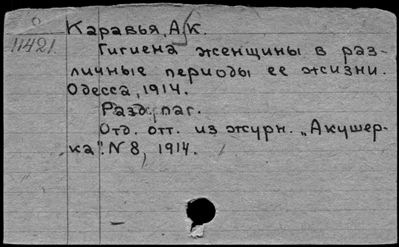 Каравья, А. К.
11421
Гигиена женщины в раз-
личные периоды ее жизни.
Одесса, 1914.
Разд. паг.
Отд. отт. из журн. „Акушер-
ка". № 8, 1914.